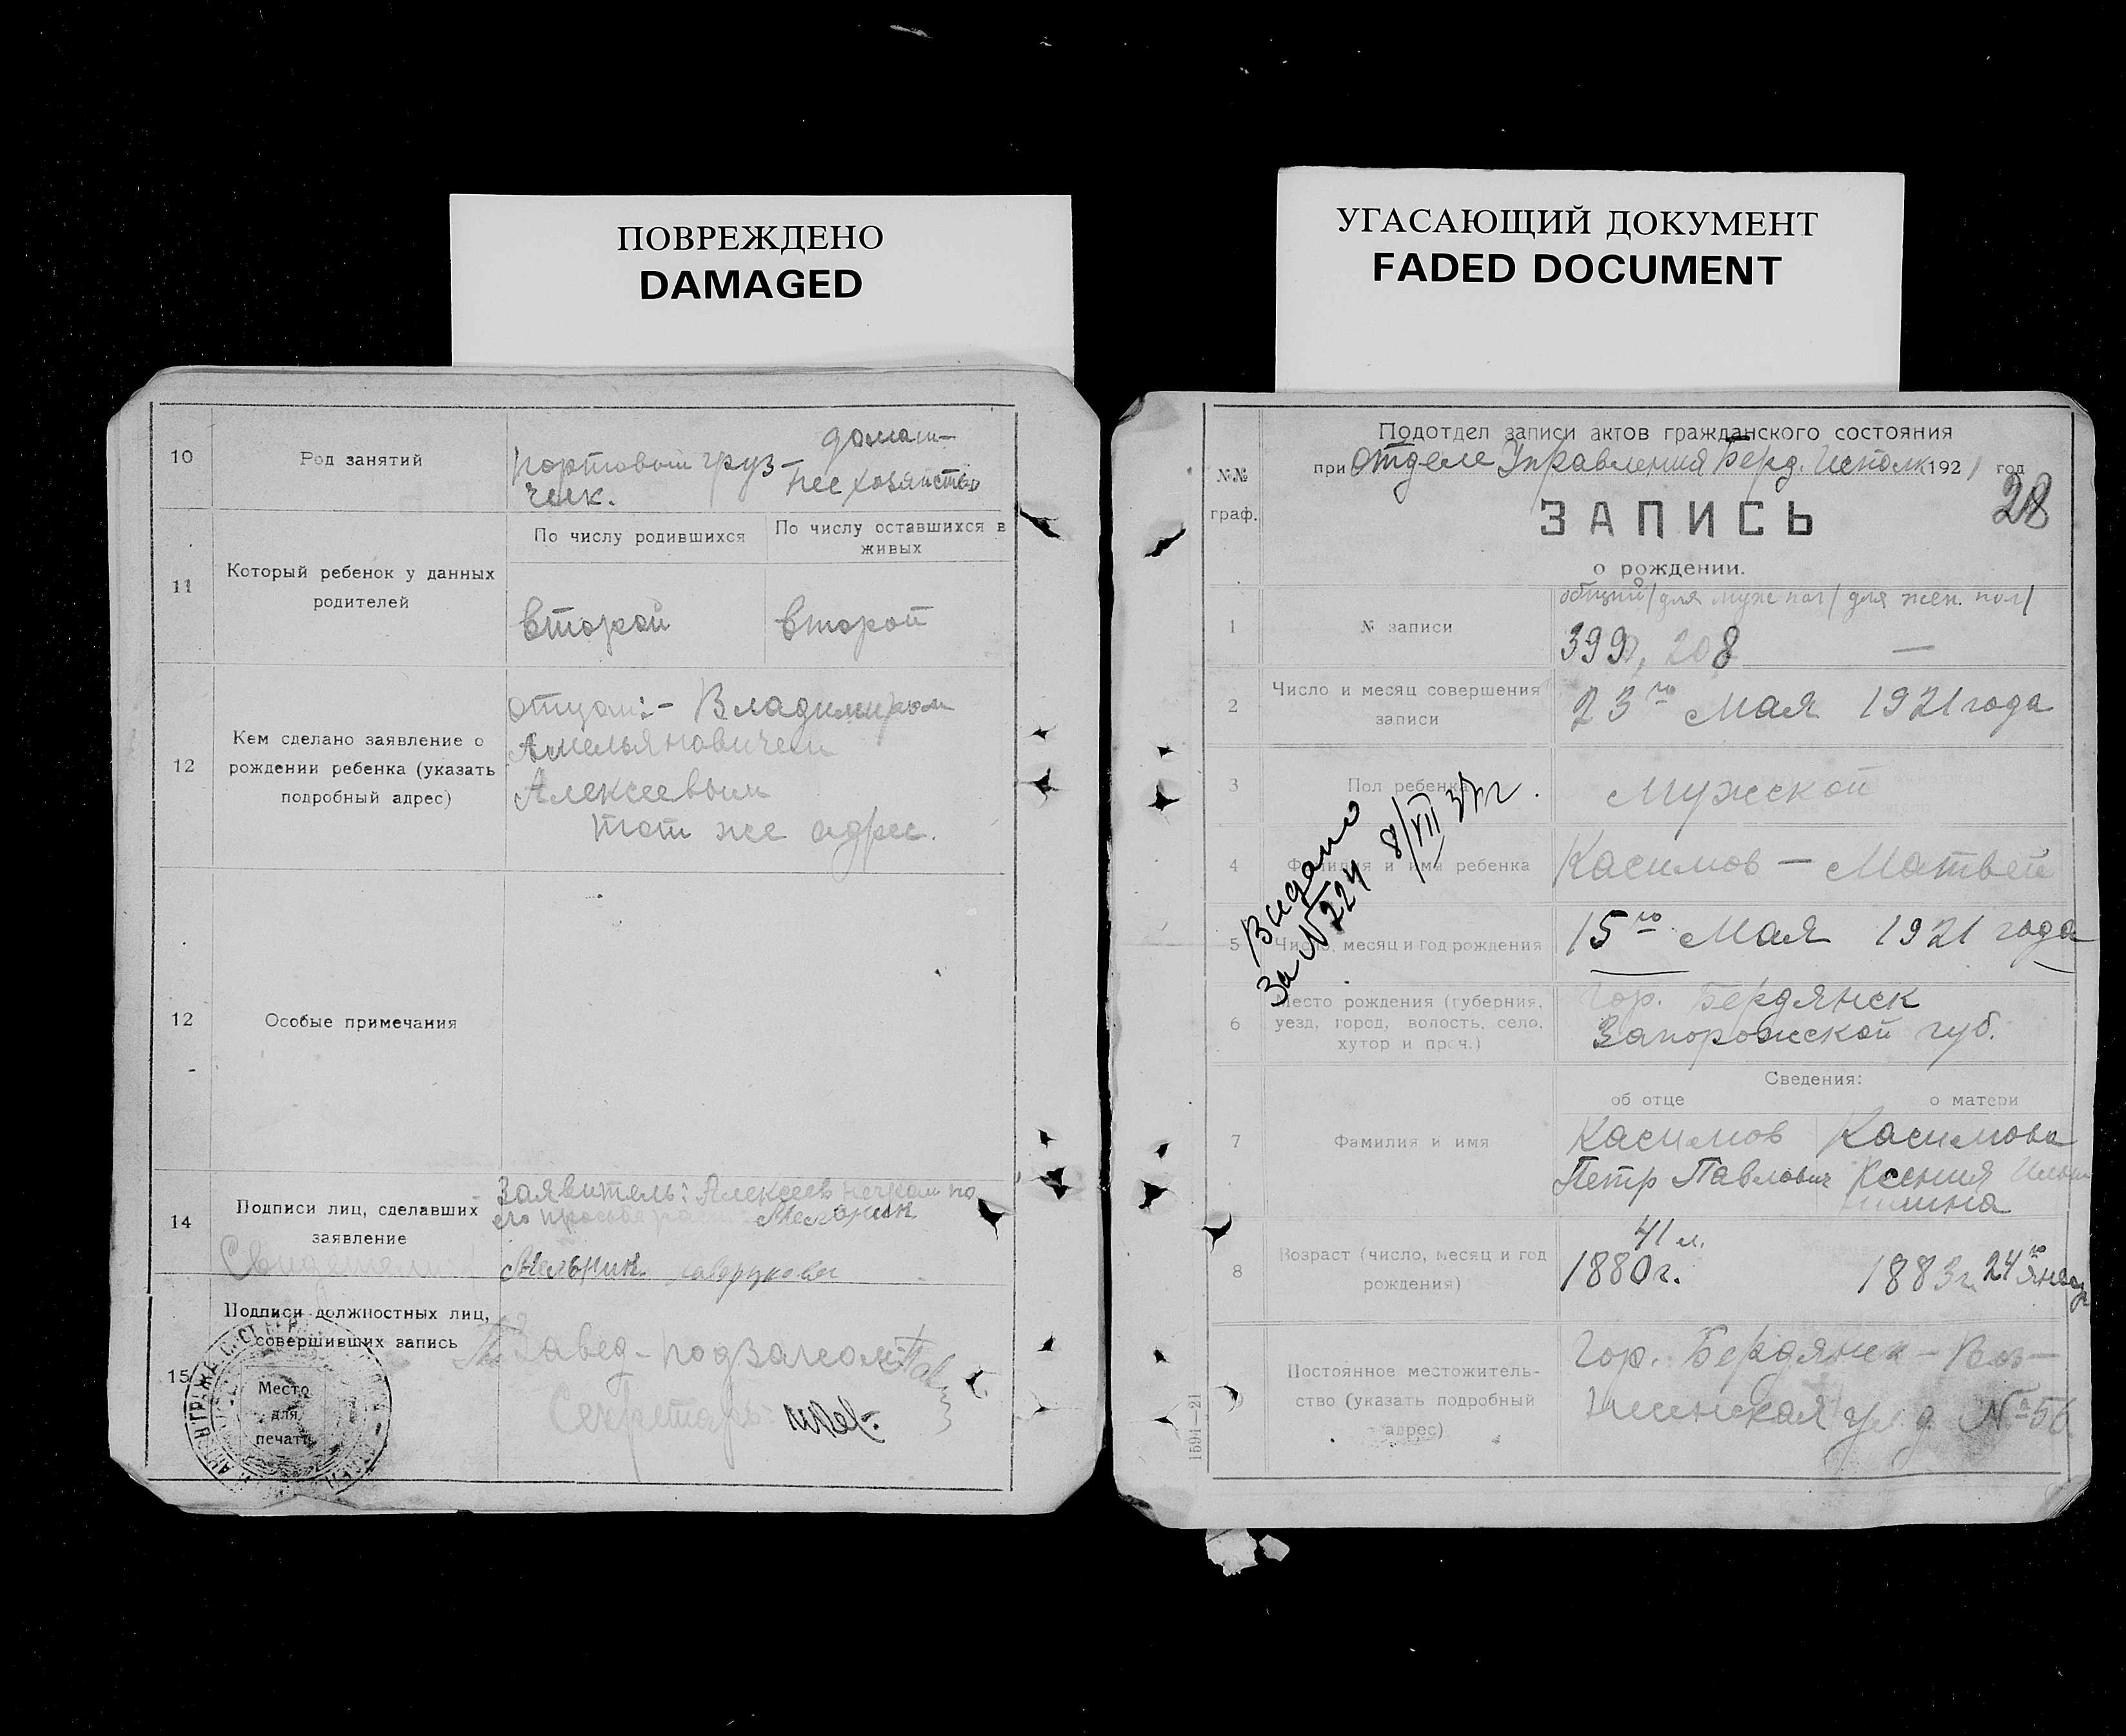 ПОВРЕЖДЕНО
DAMAGED
10
Род занятий
портовый груз-
чик.
домаш-
нее хозяйство
11
Который ребенок у данных
родителей
По числу родившихся
По числу оставшихся в
живых
второй
второй
12
Кем сделано заявление о
рождении ребенка (указать
подробный адрес)
отцом:- Владимиром
Амельяновичем
Алексеевым
тот же адрес.
12
Особые примечания
14
Подписи лиц, сделавших
заявление
Свидетели
Заявитель: Алексеев
его просьбе Мельник
Мельник
15
Подписи должностных лиц,
совершивших запись
Место
для
печати
Завед-
Секретарь:
УГАСАЮЩИЙ ДОКУМЕНТ
FADED DOCUMENT
№№
граф.
Подотдел записи актов гражданского состояния
при Отделе Управления Берд. Исполк 1921 год
28
ЗАПИСЬ
о рождении.
1
№ записи
общий/для муж пол/для жен. пол/
399, 208 —
2
Число и месяц совершения
записи
23го Мая 1921 года
3
Пол ребенка
Мужской
4
Фамилия и имя ребенка
Касимов — Матвей
5
Число, месяц и год рождения
15го Мая 1921 года
Видано
за № 224 8/VII 37г.
6
Место рождения (губерния,
уезд, город, волость, село,
хутор и проч.)
Гор. Бердянск
Запорожской губ.
Сведения:
об отце
о матери
7
Фамилия и имя
Касимов
Петр Павлович
Касимова
Ксения
8
Возраст (число, месяц и год
рождения)
41 л.
1880г.
1883г. 24го
9
Постоянное местожитель-
ство (указать подробный
адрес)
Гор. Бердянск - Воз-
ул д № 56
1591—21